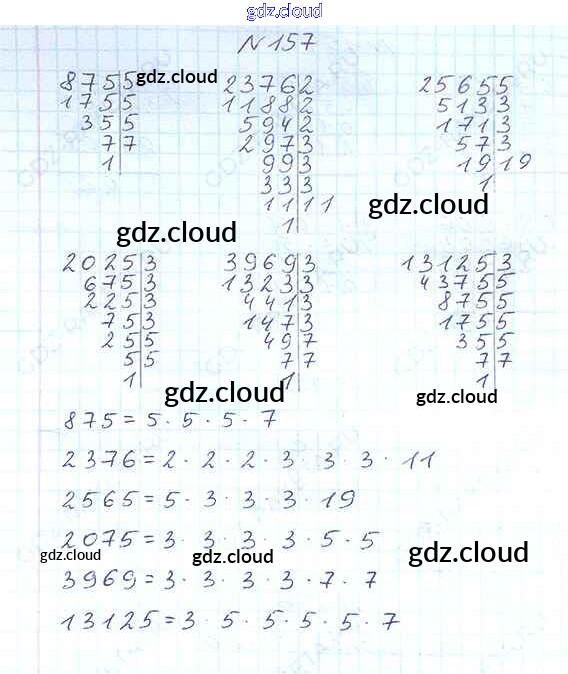 gdz.cloud
N 157
875|5 gdz.cloud 2376|2 2565|5
175|5 1188|2 513|3
35|5 594|2 171|3
7|7 297|3 57|3
1| 99|3 19|19
33|3 1|
11|11 gdz.cloud
1|
gdz.cloud
2025|3 3969|3 13125|3
675|3 1323|3 4375|5
225|3 441|3 875|5
75|3 147|3 175|5
25|5 49|7 35|5
5|5 7|7 7|7
1| 1| 1|
gdz.cloud gdz.cloud
875 = 5 · 5 · 5 · 7
2376 = 2 · 2 · 2 · 3 · 3 · 3 · 11
2565 = 5 · 3 · 3 · 3 · 19
2075 = 3 · 3 · 3 · 3 · 5 · 5
gdz.cloud gdz.cloud
3969 = 3 · 3 · 3 · 3 · 7 · 7
13125 = 3 · 5 · 5 · 5 · 5 · 7